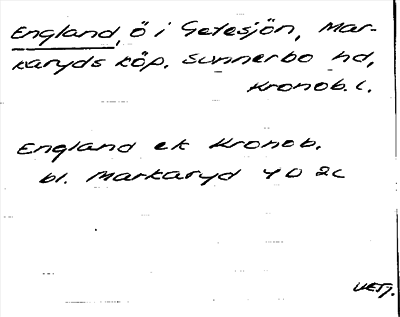 England, ö i Getesjön, Mar-
karyds köp. Sunnerbo hd,
Kronob. l.
England ek Kronob.
bl. Markaryd 4 D 2c